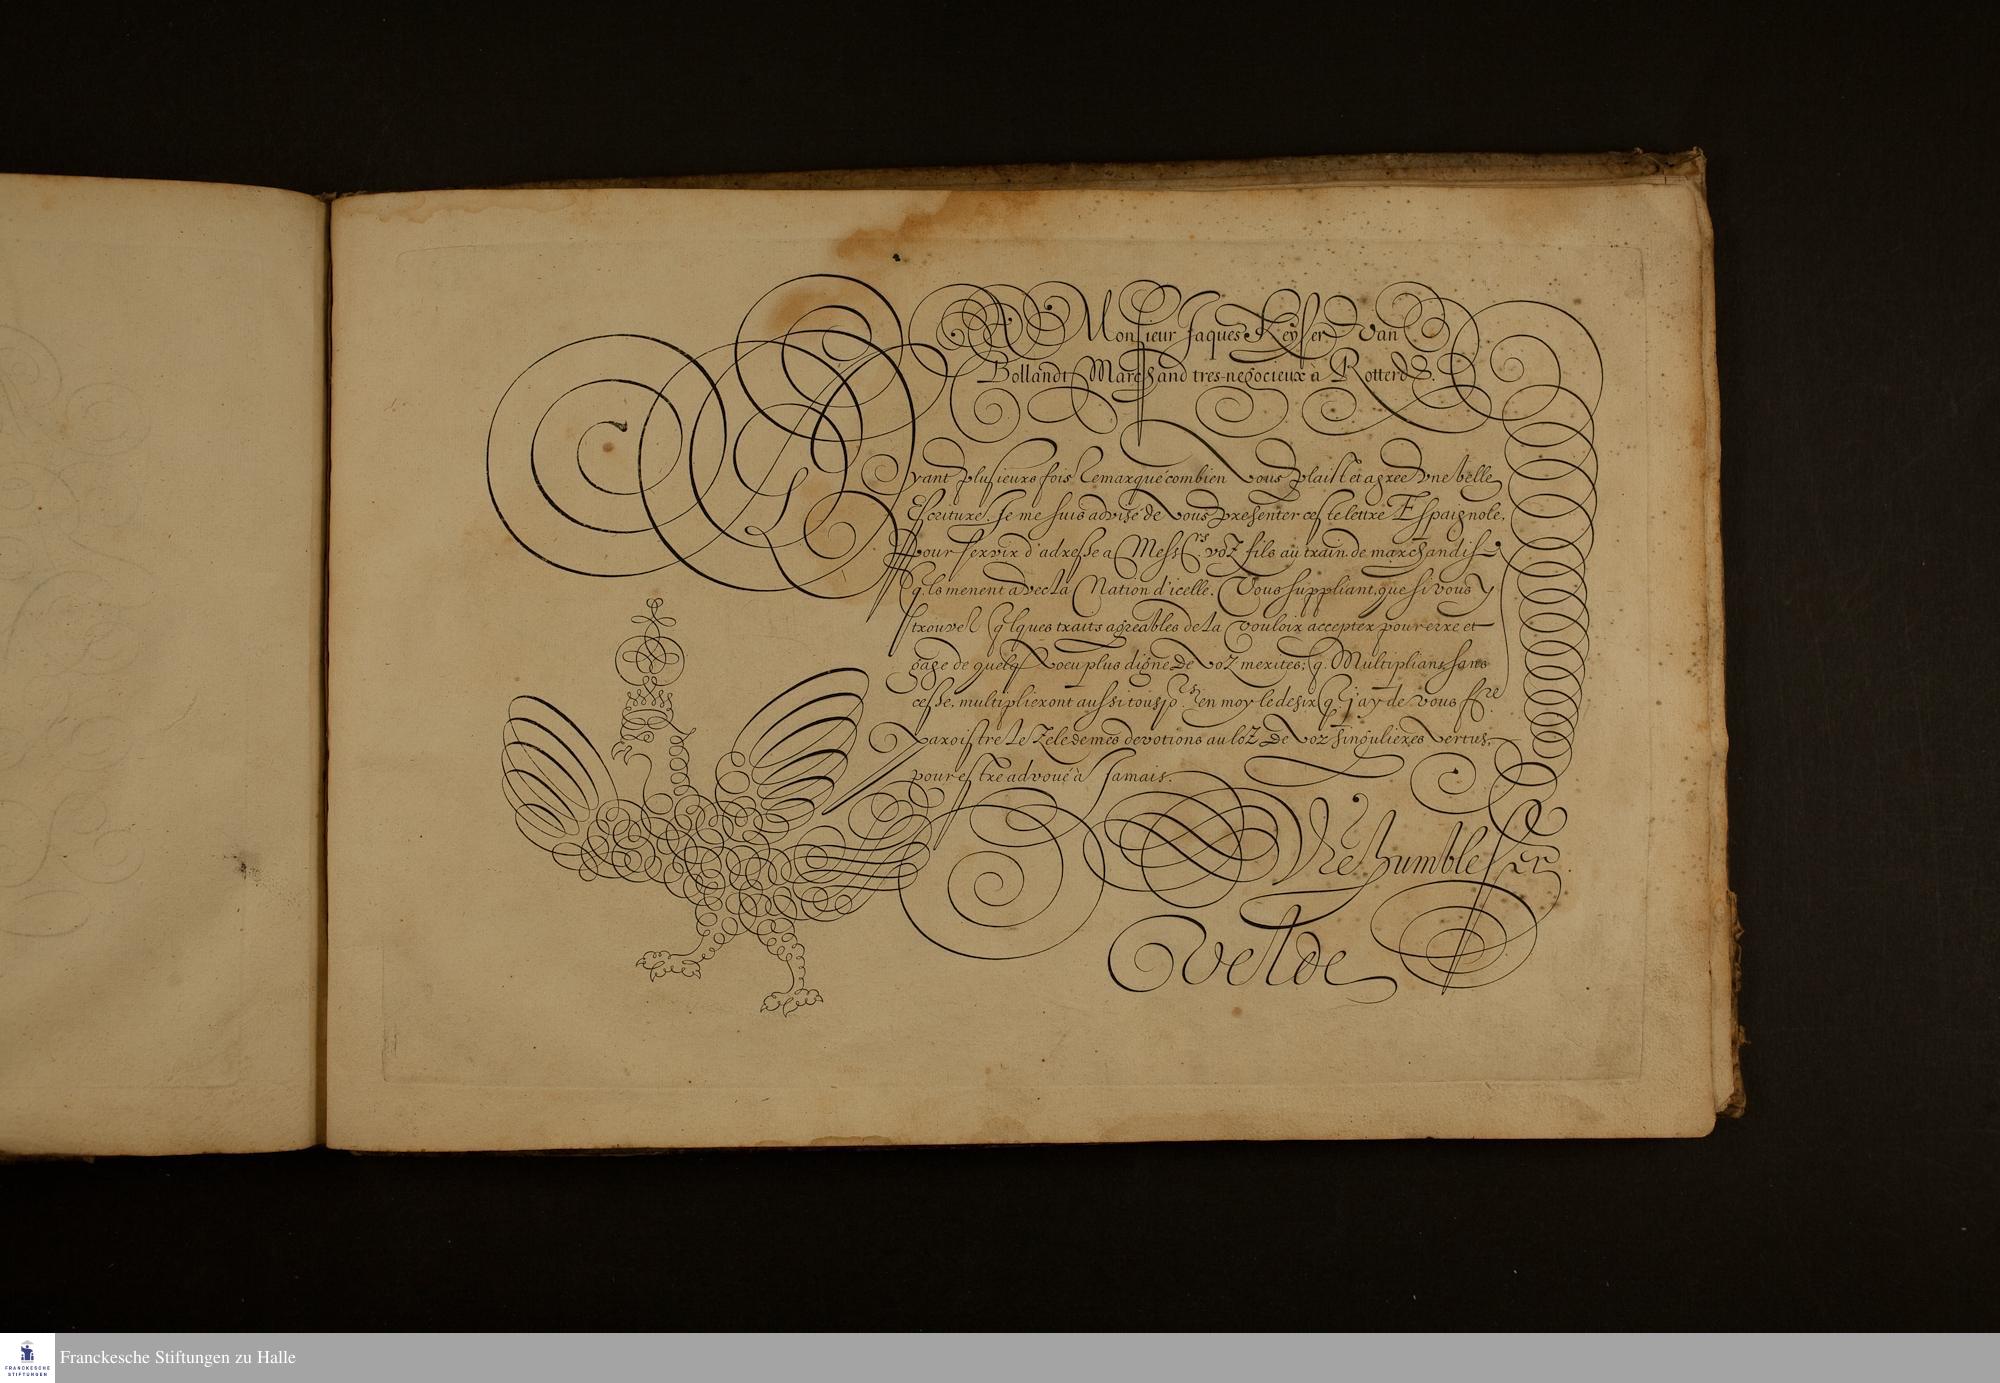 A Monsieur Jaques Keyser van
Bollandt Marchand tres-negocieux à Rotterd.
Ayant plusieurs fois Remarqué combien vous plaist et agree vne belle
Escriture. Je me suis advisé de vous presenter ceste lettre Espaignole,
pour servir d'adresse a Mess.rs voz fils au train de marchandise
q. ils menent avec la Nation d'icelle. Vous suppliant, que si vous y
trouvez q̃lques traits agreables de la vouloir accepter pour erre et
gage de quelq̃ voeu plus digne de voz merites; q. Multiplians sans
cesse, multiplieront aussi tousjo.rs en moy le desir q. j'ay de vous f.re
paroistre le Zele de mes devotions au loz de voz singulieres vertus,
pour estre advoué à Jamais.
Vr̃e humble ser.
velde
Franckesche Stiftungen zu Halle
FRANCKESCHE
STIFTUNGEN